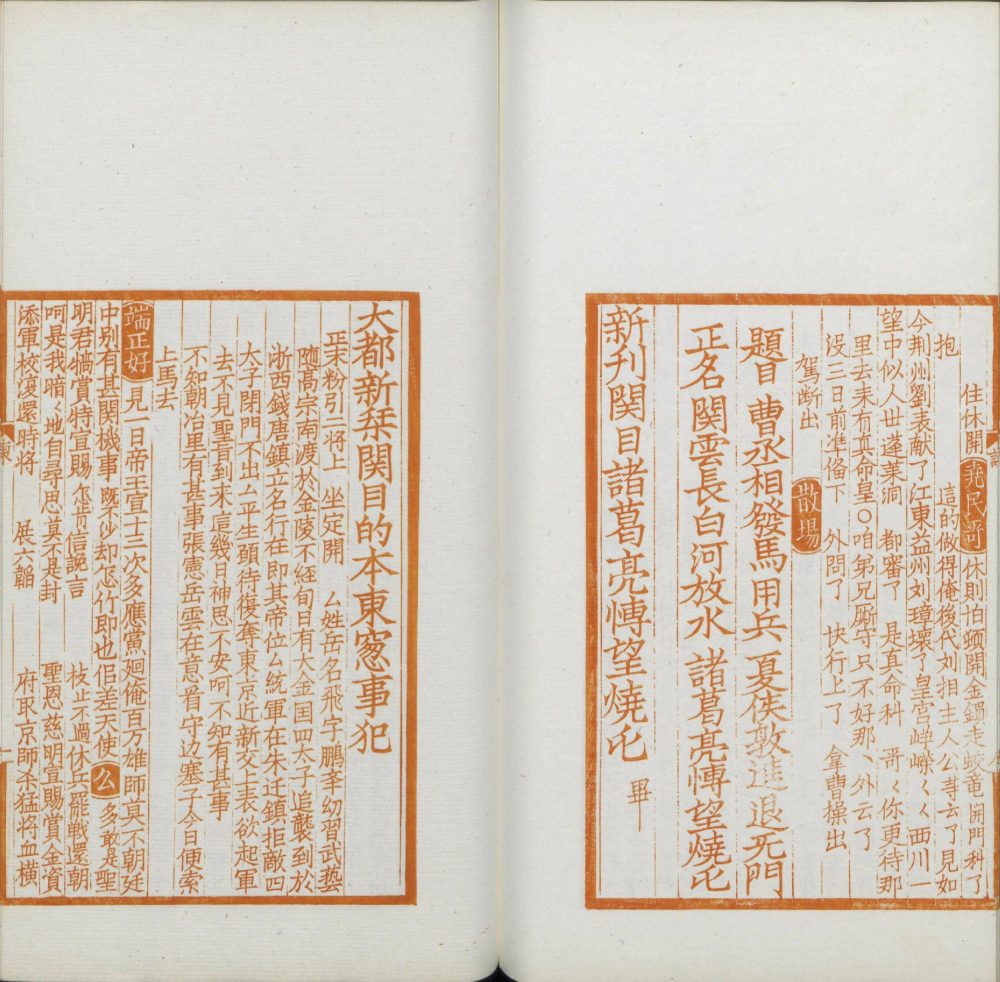 住休開 堯民哥 休則怕頓開金鎖走蛟竜開門科了
抱 這的做得俺後代刘相主人公寺去了見如
今荆州劉表献了江東益州刘璋壊了皇宫嵘〻西川一
望中似人世蓬莱洞 都審了 是真命科 哥〻你更待那
里去末有真命皇〇咱弟兄厮守只不好那、外云了
没三日前準俻下 外問了 快行上了 拿曹操出
駕断出 散場
題目 曹丞相發馬用兵 夏侯敦進退死門
正名 関雲長白河放水 諸葛亮愽望燒屯
新刋関目諸葛亮愽望燒屯 畢
大都新栞関目的本東窓事犯
正末粉引二将上 坐定開 厶姓岳名飛字鵬峯㓜習武藝
随高宗南渡於金陵不経旬日有大金国四太子追襲到於
淅西錢唐鎮立名行在即其帝位厶統軍在朱迁鎮拒敵四
太子閉門不出厶平生頋待復奪東京近新交上表欲起軍
去不見聖旨到来這幾日神思不安呵不知有甚事
不知朝冶里有甚事張憲岳雲在意者守边塞子今日便索
上馬去
端正好 見一日帝王宣十三次多應黨廻俺百万雄師莫不朝廷
中别有甚関機事 既不沙却怎竹即也但差天使 么 多敢是聖
明君犒賞特宣賜 怎肯信説言 枝止不過休兵罷戦還朝
呵是我暗〻地自尋思莫不是封 聖恩慈明宣賜賞金資
添軍校滚還時将 展六韜 府取京師杀猛将血横